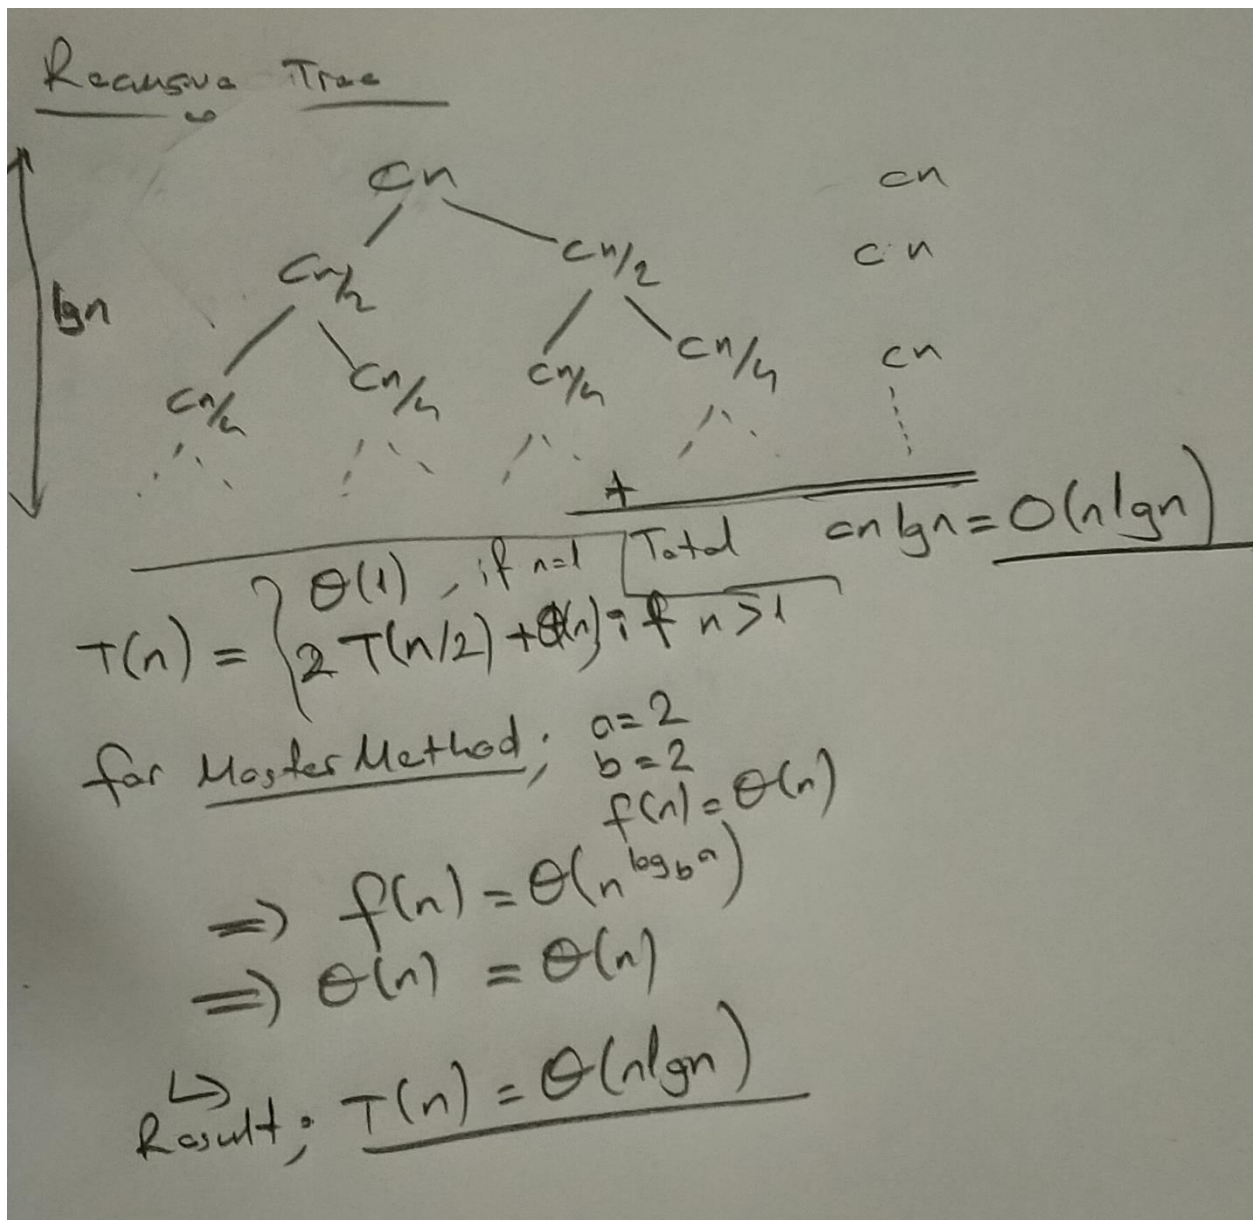 Recursive Tree
cn cn
cn/2 cn/2 cn
lgn
cn/4 cn/4 cn/4 cn/4 cn
+
Total cn lgn = O(nlgn)
T(n) = { Θ(1), if n=1
2T(n/2) + Θ(n); if n>1
for Master Method; a=2
b=2
f(n) = Θ(n)
=> f(n) = Θ(n^log_b a)
=> Θ(n) = Θ(n)
↳
Result; T(n) = Θ(nlgn)